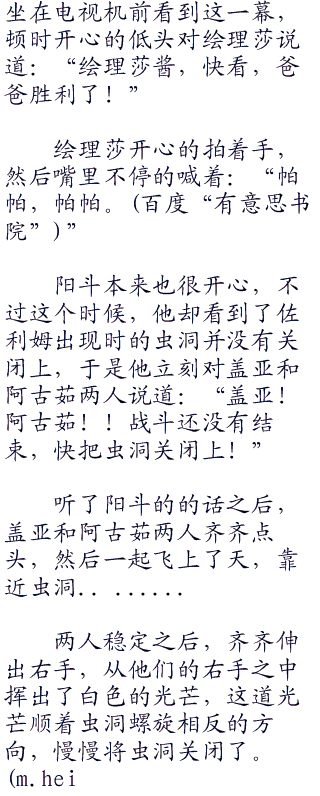 坐在电视机前看到这一幕，
顿时开心的低头对绘理莎说
道：“绘理莎酱，快看，爸
爸胜利了！”
绘理莎开心的拍着手，
然后嘴里不停的喊着：“帕
帕，帕帕。(百度“有意思书
院”)”
阳斗本来也很开心，不
过这个时候，他却看到了佐
利姆出现时的虫洞并没有关
闭上，于是他立刻对盖亚和
阿古茹两人说道：“盖亚！
阿古茹！！战斗还没有结
束，快把虫洞关闭上！”
听了阳斗的的话之后，
盖亚和阿古茹两人齐齐点
头，然后一起飞上了天，靠
近虫洞........
两人稳定之后，齐齐伸
出右手，从他们的右手之中
挥出了白色的光芒，这道光
芒顺着虫洞螺旋相反的方
向，慢慢将虫洞关闭了。
(m.hei